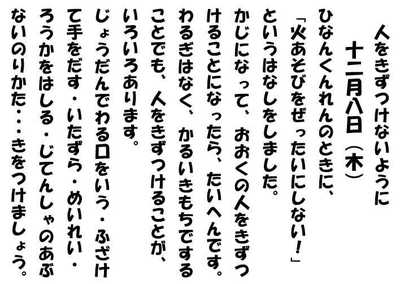 人をきずつけないように
十二月八日（木）
ひなんくんれんのときに、
「火あそびをぜったいにしない！」
というはなしをしました。
かじになって、おおくの人をきずつ
けることになったら、たいへんです。
わるぎはなく、かるいきもちでする
ことでも、人をきずつけることが、
いろいろあります。
じょうだんでわる口をいう・ふざけ
て手をだす・いたずら・めいれい・
ろうかをはしる・じてんしゃのあぶ
ないのりかた・・・きをつけましょう。